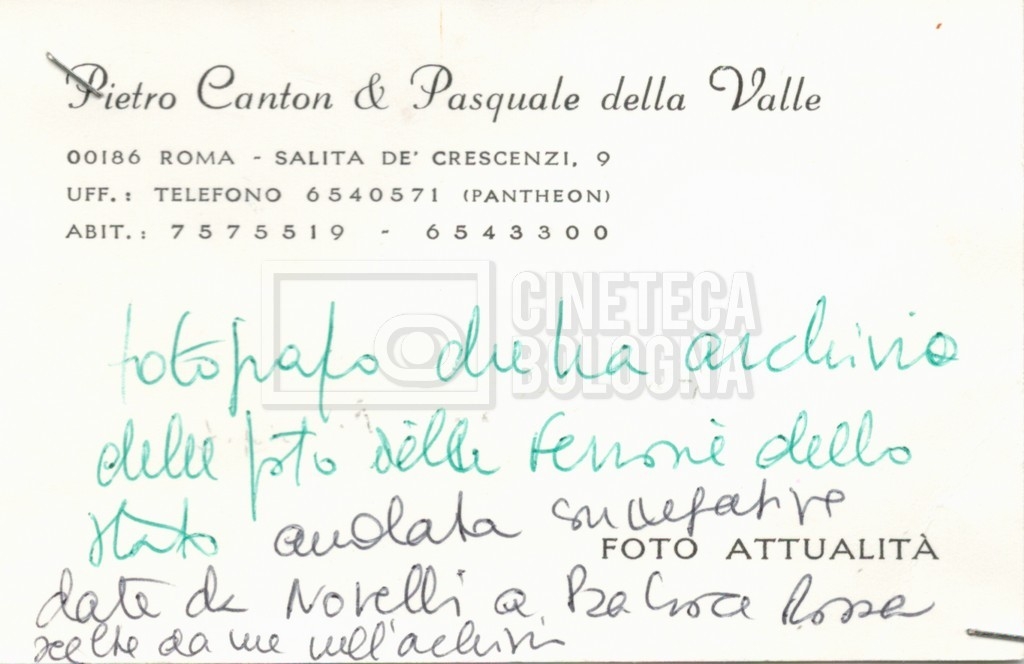 Pietro Canton & Pasquale della Valle
00186 ROMA - SALITA DE' CRESCENZI, 9
UFF.: TELEFONO 6540571 (PANTHEON)
ABIT.: 7575519 - 6543300
CINETECA
BOLOGNA
fotografo che ha archivio
delle foto delle ferrovie dello
stato andata
FOTO ATTUALITÀ
date da Novelli a Rossa
scelte da me nell'archivi